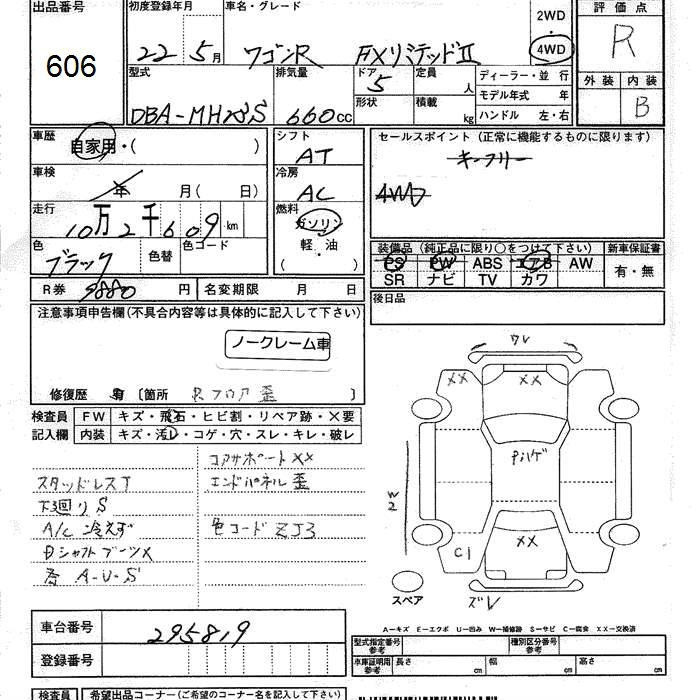 出品番号 初度登録年月 車名・グレード 2WD 評価点
606 22 5月 ワゴンR FXリミテッドⅡ 4WD R
型式 排気量 ドア 定員 ディーラー・並行 外装 内装
5 人 モデル年式 年
DBA-MH23S 660cc 形状 積載 kg ハンドル 左・右 B
車歴 自家用・( ) シフト AT セールスポイント (正常に機能するものに限ります)
キーフリー
車検 年 月( 日) 冷房 AC 4WD
走行 10万2千609km 燃料 ガソリン
軽・油
( )
色 ブラック 色替 色コード 装備品 (純正品に限り○をつけて下さい) 新車保証書
PS PW ABS エアB AW 有・無
SR ナビ TV カワ
R券 9880円 名変期限 月 日 後日品
注意事項申告欄(不具合内容等は具体的に記入して下さい)
ノークレーム車
修復歴 有 [箇所 Rフロア歪 ]
検査員 FW キズ・飛石・ヒビ割・リペア跡・×要
記入欄 内装 キズ・汚れ・コゲ・穴・スレ・キレ・破レ
コアサポートXX
スタッドレスT エンドパネル歪
下廻りS
A/C 冷えず 色コード ZJ3
シャフトブーツX
A-U-S
ワレ
XX XX
Pハゲ
W2
C1 XX
スペア ズレ
A-キズ E-エクボ U-凹み W-補修跡 S-サビ C-腐食 XX-交換済
車台番号 295819
登録番号
型式指定番号 参考 種別区分番号 参考
車庫証明用 参考 長さ cm 幅 cm 高さ cm
検査員 希望出品コーナー(ご希望のコーナー名を記入下さい)